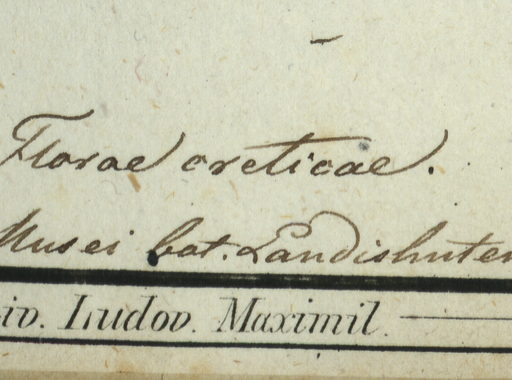 Florae creticae.
Musei bot. Landishuten
iv. Ludov. Maximil.